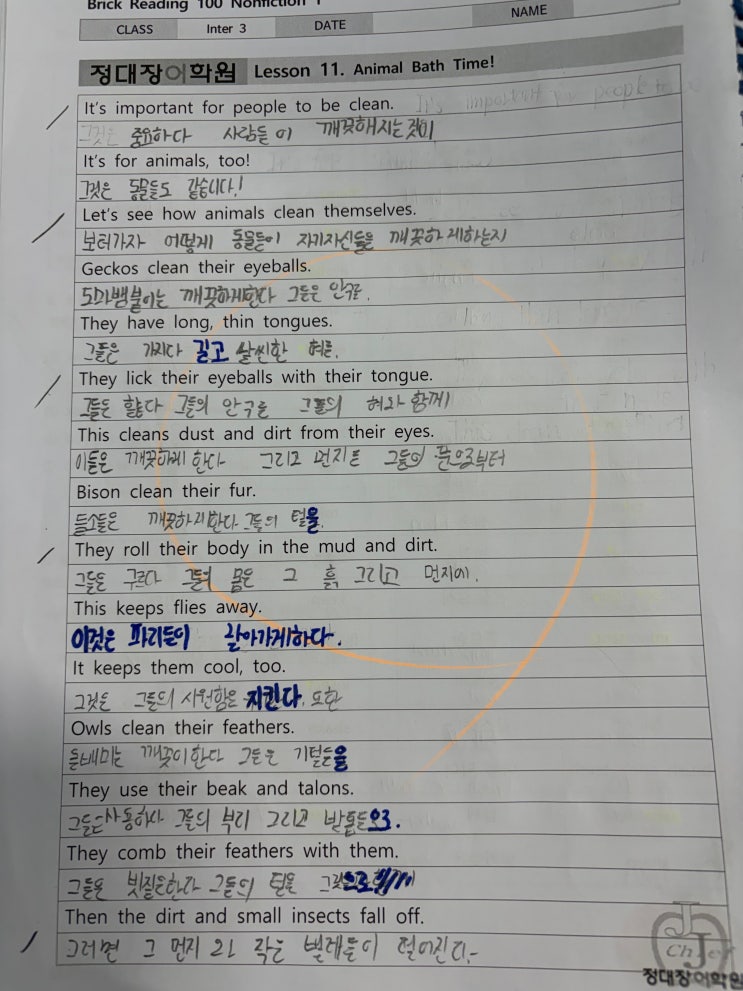 Brick Reading 100 Nonfiction 1
CLASS Inter 3 DATE NAME
정대장어학원 Lesson 11. Animal Bath Time!
It's important for people to be clean.
그것은 중요하다 사람들이 깨끗해지는것이
It's for animals, too!
그것은 동물들도 같습니다!
Let's see how animals clean themselves.
보러가자 어떻게 동물들이 자기자신들을 깨끗하게하는지
Geckos clean their eyeballs.
도마뱀붙이는 깨끗하게한다 그들은 안구를.
They have long, thin tongues.
그들은 가지다 길고 날씬한 혀를.
They lick their eyeballs with their tongue.
그들은 핥는다 그들의 안구를 그들의 혀와 함께!
This cleans dust and dirt from their eyes.
이들은 깨끗하게 한다 그리고 먼지를 그들의 눈으로부터
Bison clean their fur.
들소들은 깨끗하게한다 그들의 털을.
They roll their body in the mud and dirt.
그들은 구르다 그들의 몸은 그 흙 그리고 먼지에.
This keeps flies away.
이것은 파리들이 날아가게하다.
It keeps them cool, too.
그것은 그들의 시원함을 지킨다. 또한
Owls clean their feathers.
올배미는 깨끗이한다 그들은 기털들을
They use their beak and talons.
그들은사용하다 그들의 부리 그리고 발톱들으로.
They comb their feathers with them.
그들은 빗질을한다 그들의 털을
Then the dirt and small insects fall off.
그러면 그 먼지 와 작은 벌레들이 떨어진다.
J J Chief
정대장어학원